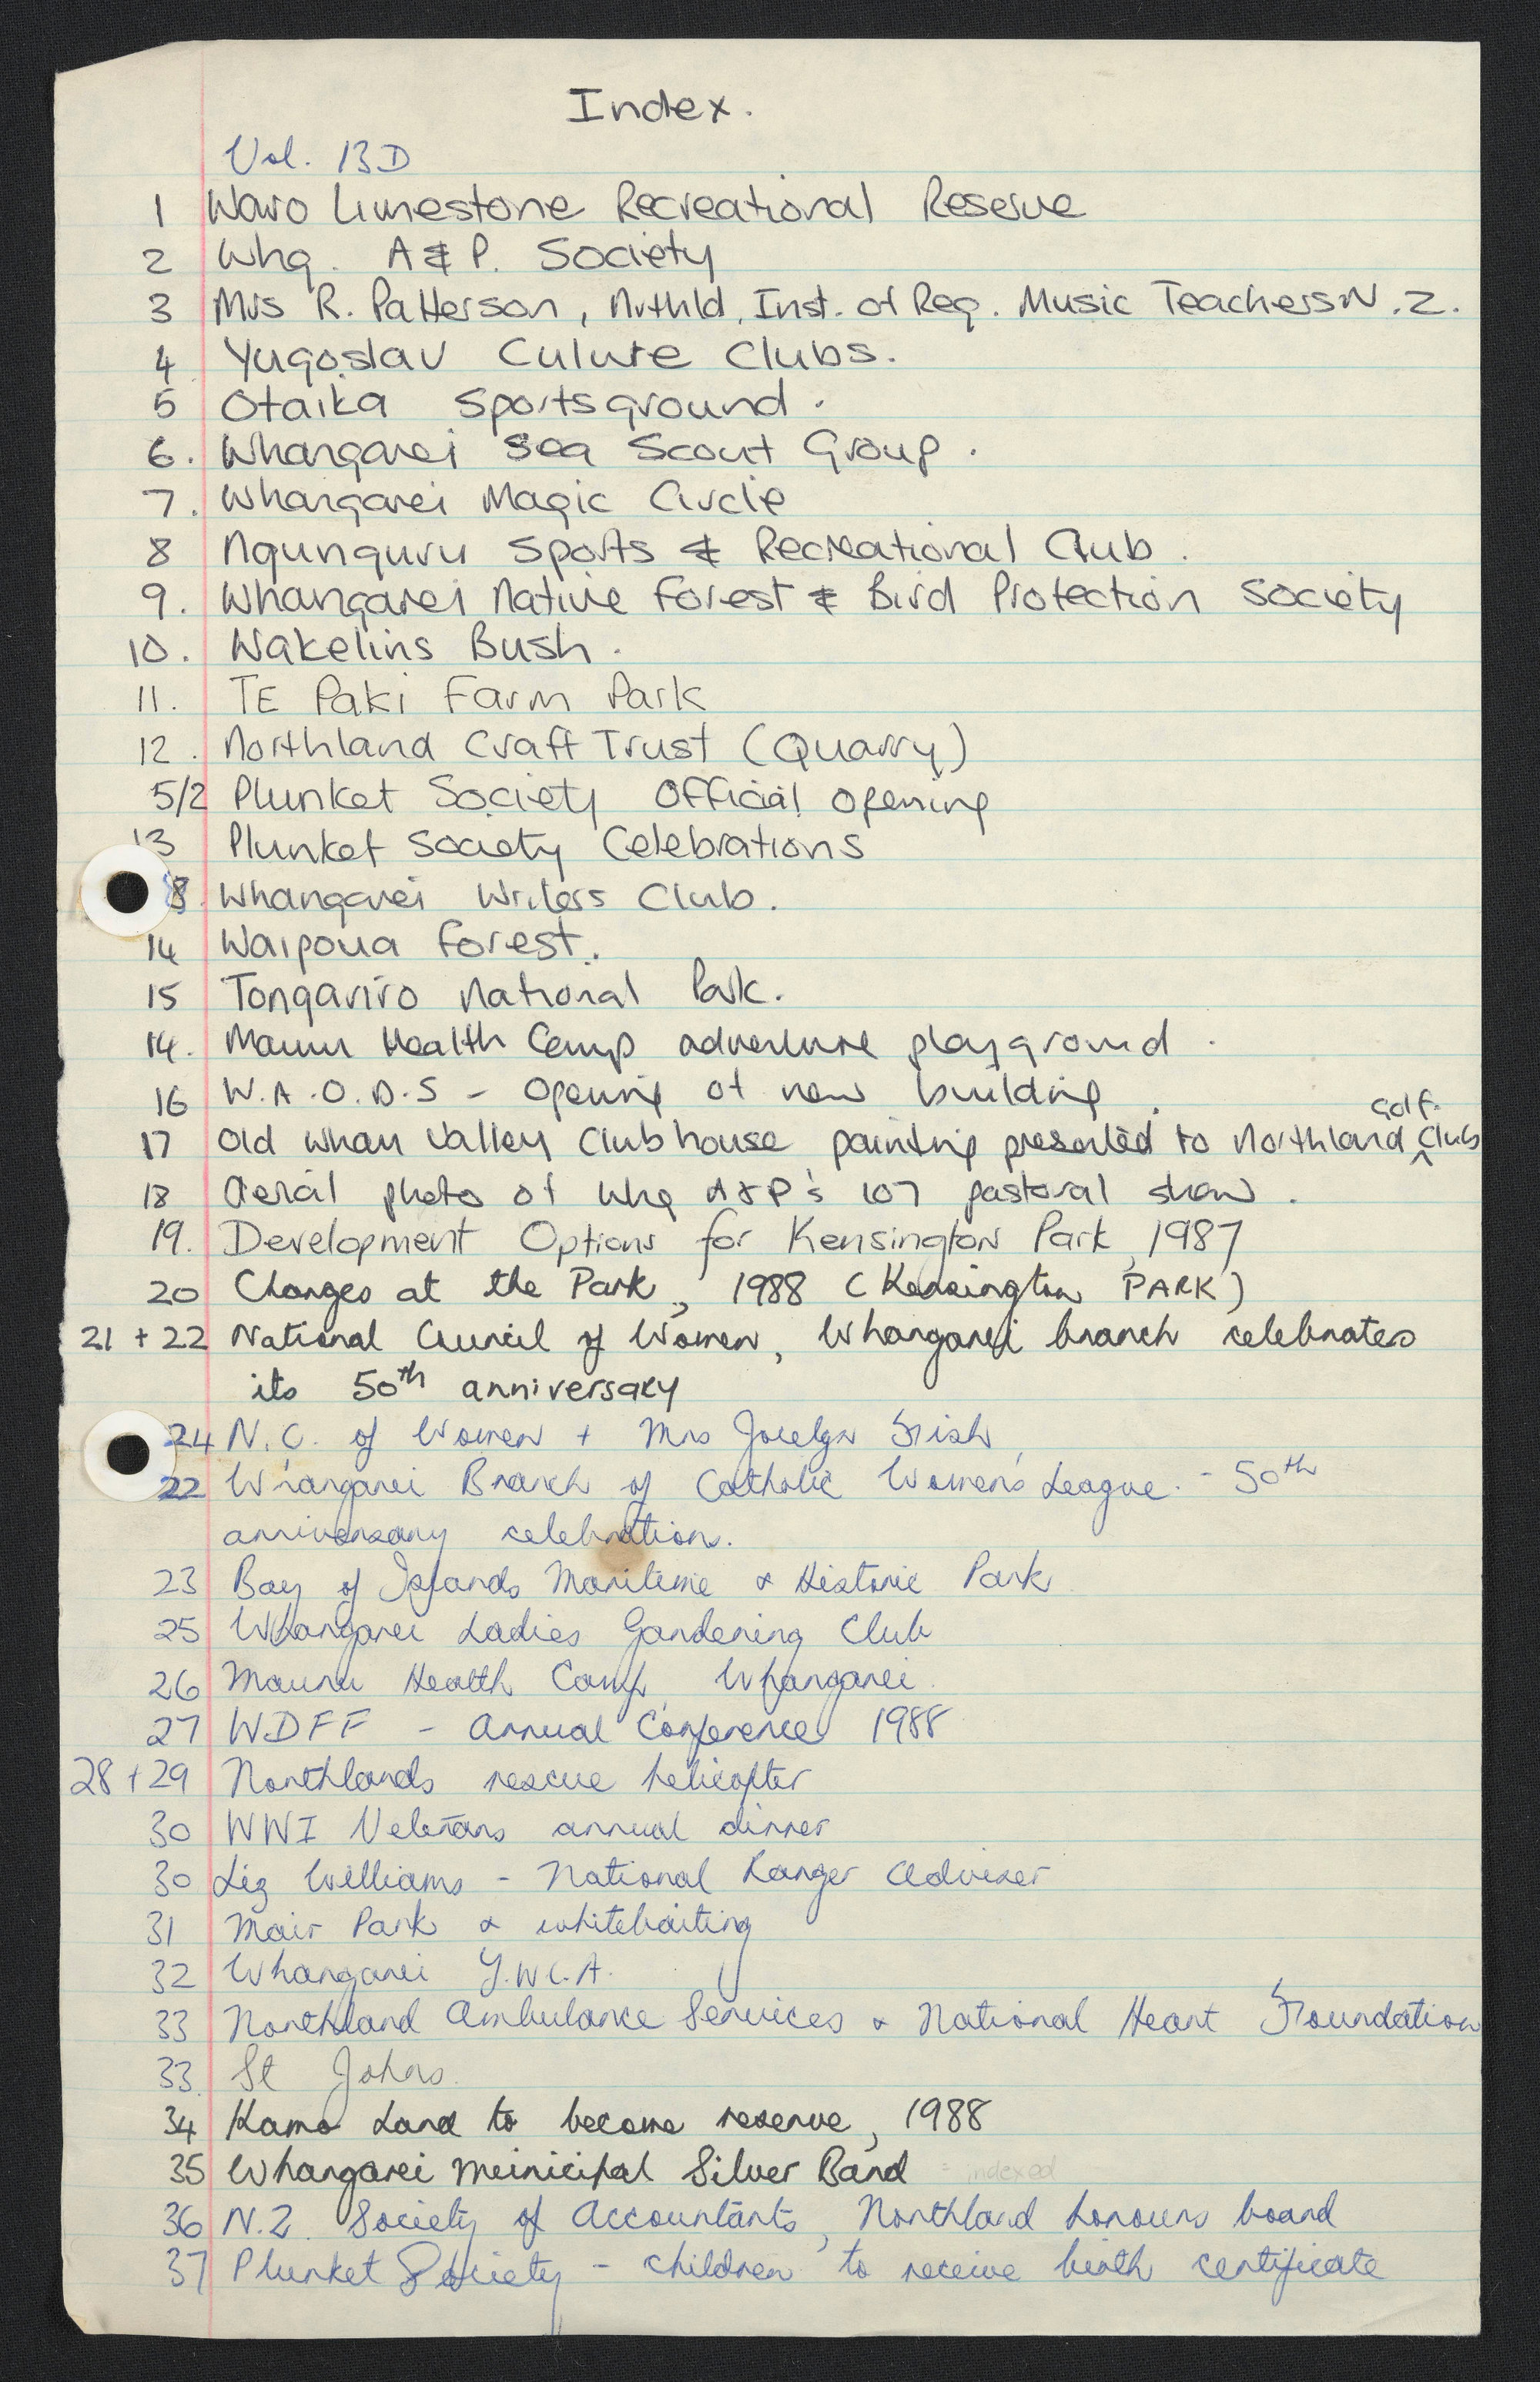 Index.
Vol. 13D
1 Waro Limestone Recreational Reserve
2 Whg. A & P. Society
3 Mrs R. Patterson, Nrthld. Inst. of Reg. Music Teachers N.Z.
4 Yugoslav Culure Clubs.
5 Otaika Sportsground.
6. Whangarei Sea Scout Group.
7. Whangarei Magic Circle
8 Ngunguru Sports & Recreational Club.
9. Whangarei Native Forest & Bird Protection Society
10. Wakelins Bush.
11. TE Paki Farm Park
12. Northland Craft Trust (Quarry)
5/2 Plunket Society Official Opening
13 Plunket Society Celebrations
8. Whangarei Writers Club.
14 Waipoua Forest.
15 Tongariro National Park.
14. Maunu Health Camp adventure playground.
16 W.A.O.D.S - Opening of new building.
17 Old Whau Valley Clubhouse painting presented to Northland Golf Club
18 Aerial photo of Whg A & P's 107 pastoral show.
19. Development Options for Kensington Park, 1987
20 Changes at the Park, 1988 (Kensington PARK)
21 + 22 National Council of Women, Whangarei branch celebrates
its 50th anniversary
24 N.C. of Women + Mrs Jocelyn Fish
22 Whangarei Branch of Catholic Women's League. - 50th
anniversary celebrations.
23 Bay of Islands Maritime & Historic Park
25 Whangarei Ladies Gardening Club
26 Maunu Health Camp, Whangarei.
27 WDFF - Annual Conference 1988
28 + 29 Northlands rescue helicopter
30 WWI Veterans annual dinner
30 Liz Williams - National Ranger Adviser
31 Mair Park & whitebaiting
32 Whangarei Y.W.C.A.
33 Northland Ambulance Services & National Heart Foundation
33. St Johns.
34 Kamo Land to become reserve, 1988
35 Whangarei Municipal Silver Band = indexed
36 N.Z. Society of Accountants, Northland honours board
37 Plunket Society - children to receive birth certificate